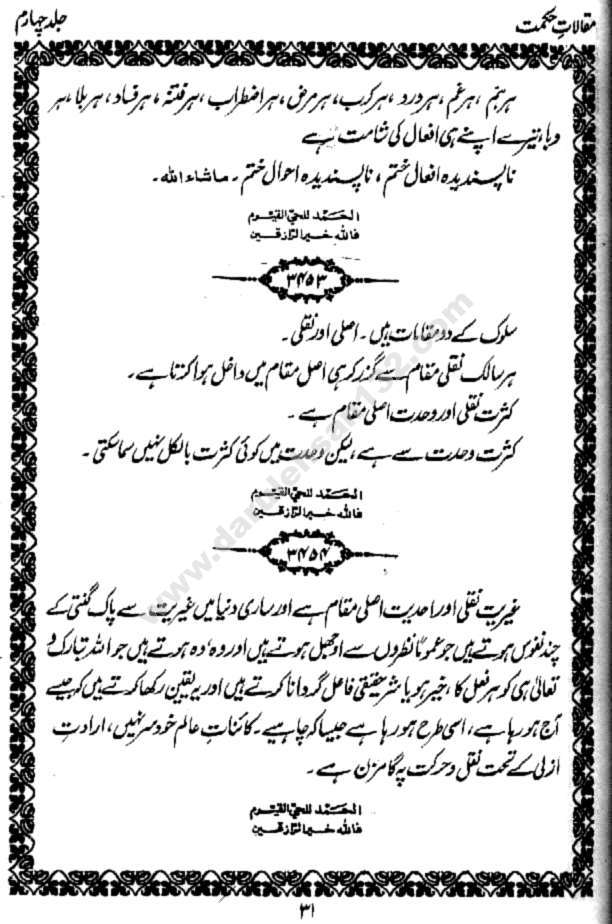 مقالاتِ حکمت
جلد چہارم
ہر ہَم ، ہر غم ، ہر درد ، ہر کرب ، ہر مرض ، ہر اضطراب ، ہر فتنہ ، ہر فساد ، ہر بلا ، ہر
وبا ، تیرے اپنے ہی افعال کی شامت ہے
ناپسندیدہ افعال ختم ، ناپسندیدہ احوال ختم ۔ ماشاء اللہ ۔
الحمد للحی القیوم
فاللہ خیر الرازقین
۳۴۵۳
سلوک کے دو مقامات ہیں ۔ اصلی اور نقلی ۔
ہر سالک نقلی مقام سے گذر کر ہی اصل مقام میں داخل ہوا کرتا ہے ۔
کثرت نقلی اور وحدت اصلی مقام ہے ۔
کثرت وحدت سے ہے ، لیکن وحدت میں کوئی کثرت بالکل نہیں سما سکتی ۔
الحمد للحی القیوم
فاللہ خیر الرازقین
۳۴۵۴
غیریت نقلی اور احدیت اصلی مقام ہے اور ساری دنیا میں غیریت سے پاک گنتی کے
چند نفوس ہوتے ہیں جو عموماً نظروں سے اوجھل ہوتے ہیں اور وہ ، وہ ہوتے ہیں جو اللہ تبارک و
تعالیٰ ہی کو ہر فعل کا ، خیر ہو یا شر حقیقی فاعل گردانا کرتے ہیں اور یہ یقین رکھا کرتے ہیں کہ جیسے
آج ہو رہا ہے ، اسی طرح ہو رہا ہے جیسا کہ چاہیے ۔ کائناتِ عالم خود سر نہیں ، ارادتِ
ازلی کے تحت نقل و حرکت پہ گامزن ہے ۔
الحمد للحی القیوم
فاللہ خیر الرازقین
۳۱